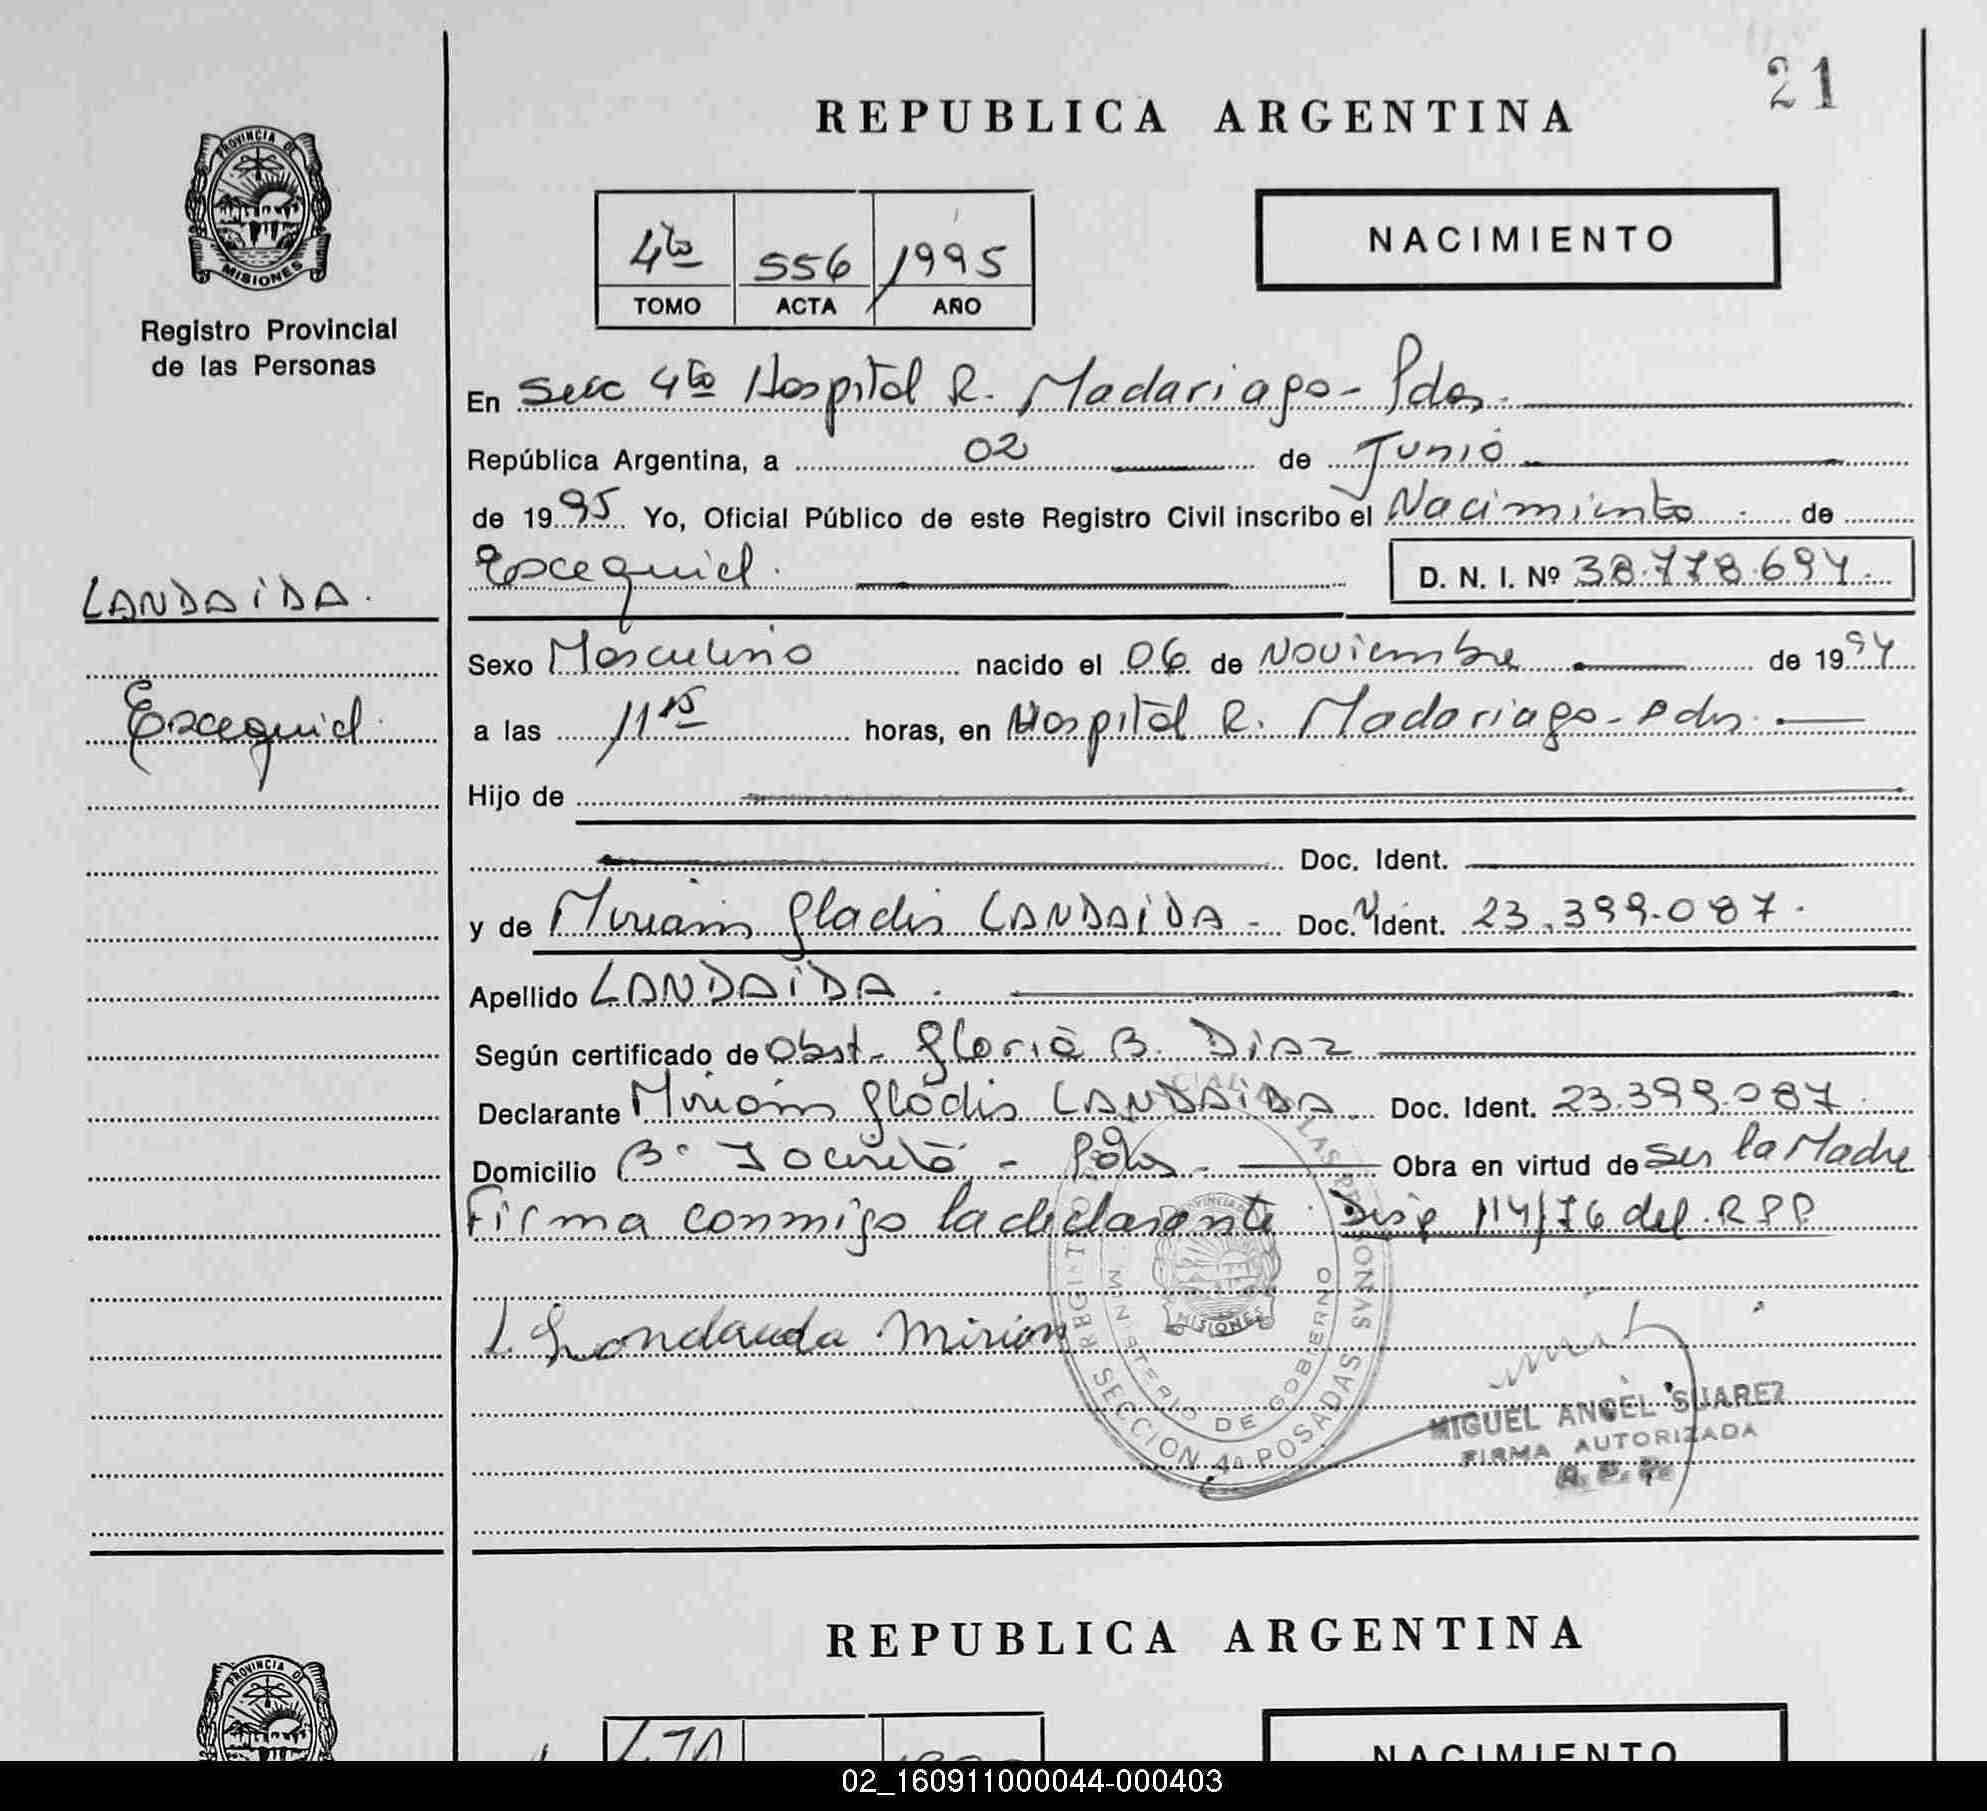 21
REPUBLICA ARGENTINA
PROVINCIA DE
MISIONES
Registro Provincial
de las Personas
4to 556 1995
TOMO ACTA AÑO
NACIMIENTO
En Secc 4ta Hospital R. Madariaga - Pdas.
República Argentina, a 02 de Junio
de 1995 Yo, Oficial Público de este Registro Civil inscribo el Nacimiento de
Excequiel. D. N. I. Nº 38.778.694.
LANDAIDA.
Excequiel.
Sexo Masculino nacido el 06 de Noviembre de 1994
a las 11 15 horas, en Hospital R. Madariaga - Pdas.
Hijo de
Doc. Ident.
y de Miriam Gladis LANDAIDA - Doc. Ident. 23.399.087.
Apellido LANDAIDA.
Según certificado de Obst. Gloria B. Diaz
Declarante Miriam Gladis LANDAIDA Doc. Ident. 23.399.087.
Domicilio Bº Yacireta - Pdas - Obra en virtud de Ser la Madre
Firma conmigo la declarante. Disp 114/76 del R P P
Landaida Miriam
REGISTRO LAS PERSONAS
MINISTERIO DE GOBIERNO
SECCION 4a POSADAS
MISIONES
MIGUEL ANGEL SUAREZ
FIRMA AUTORIZADA
R. P. P.
REPUBLICA ARGENTINA
PROVINCIA DE
NACIMIENTO
02_160911000044-000403